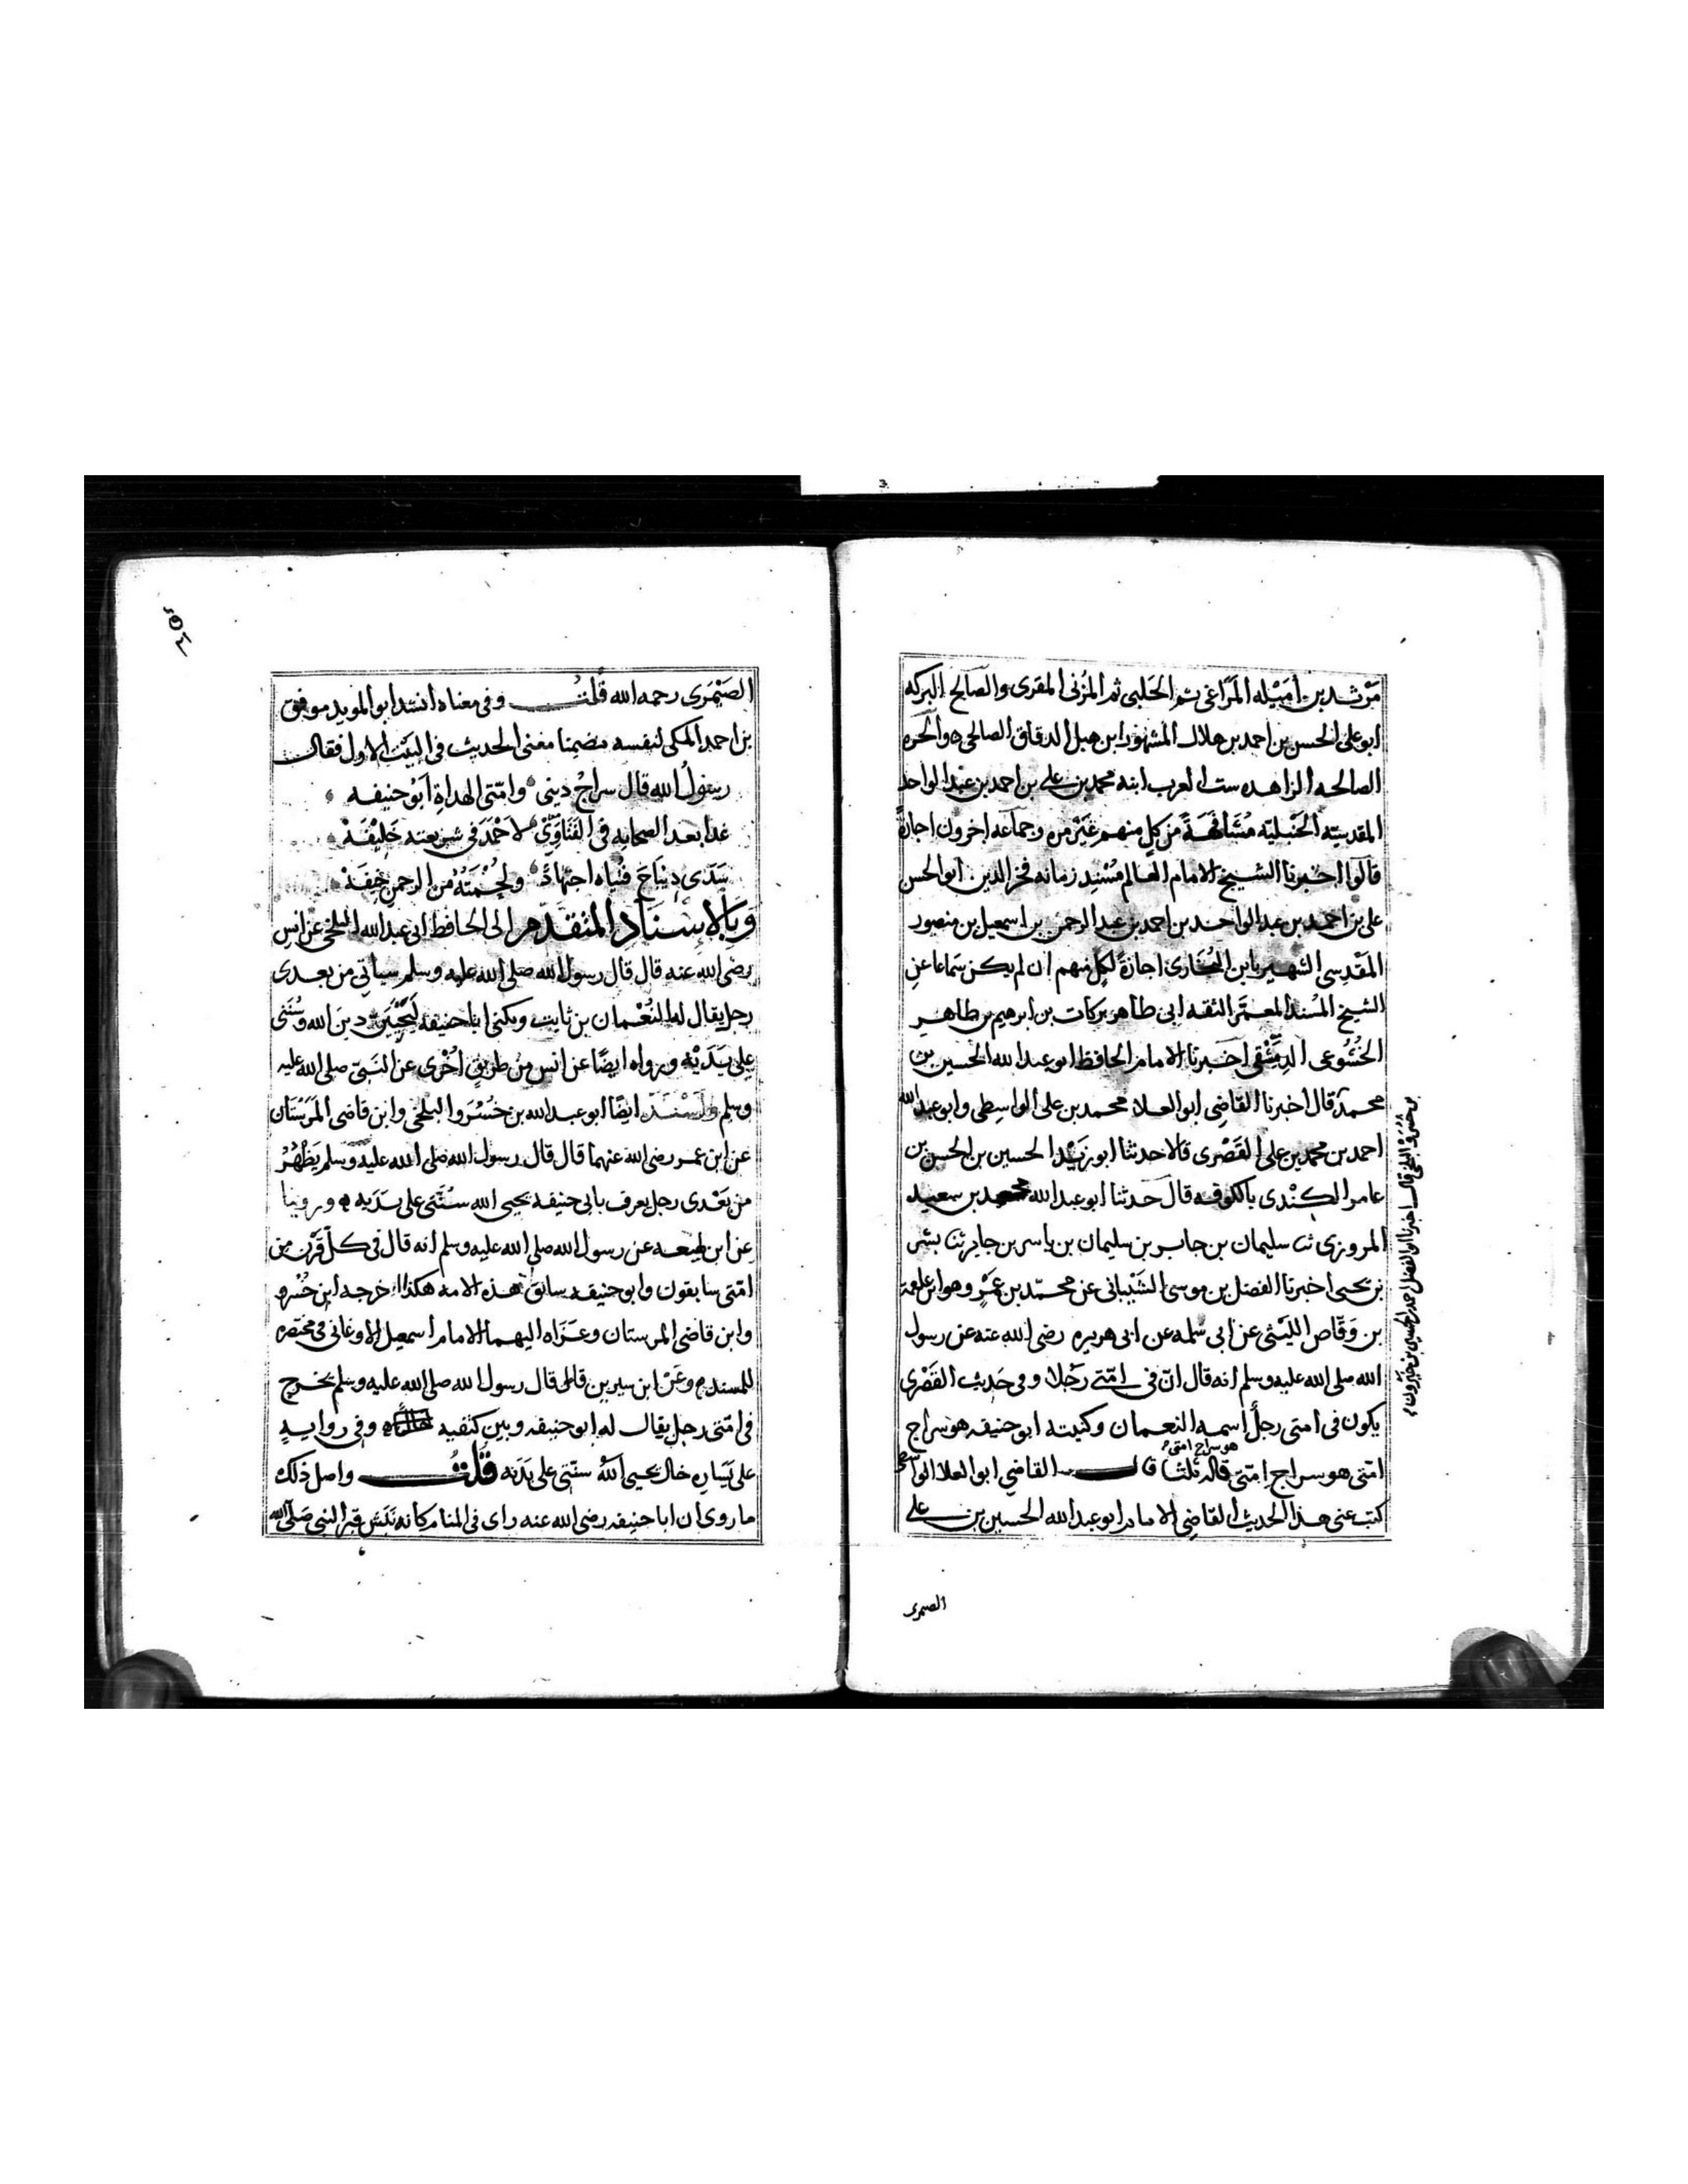 مَرْشد بن أميله المراغي ثم الحلبي ثم المزني المقرى والصالح البركه
ابو على الحسن بن احمد بن هلال المشهور بابن هبل الدقاق الصالحى والحره
الصالحه الزاهده ست العرب ابنه محمد بن على بن احمد بن عبد الواحد
المقدسيّه الحنبليّه مُشافهةً من كل منهم غير مره وجماعه اخرون اجازةً
قالوا اخبرنا الشيخ الامام العالم مُسْنِد زمانه فخر الدين ابو الحسن
على بن احمد بن عبد الواحد بن احمد بن عبد الرحمن بن اسمعيل بن منصور
المَقْدِسى الشهير بابن البُخَارى اجازةً لكل منهم ان لم يكن سماعا عن
الشيخ المُسند المعمَّر الثقه ابى طاهر بركات بن ابرهيم بن طاهر
الخُشُوعى الدِمَشْقى اخبرنا الامام الحافظ ابو عبد الله الحسين بن
محمد قال اخبرنا القاضى ابو العلا محمد بن على الواسطى وابو عبد الله
احمد بن محمد بن على القَصْرى قالا حدثنا ابو زيد الحسين بن الحسن بن
عامر الكِنْدى بالكوفه قال حدثنا ابو عبد الله محمد بن سعيد
المروزى ثنا سليمان بن جابر بن سليمان بن ياسر بن جابر ثنا بشر
بن يحيى اخبرنا الفضل بن موسى الشيبانى عن محمّد بن عَمْرٍو وهو ابن علقمة
بن وَقّاص الليْثى عن ابى سلمه عن ابى هريره رضى الله عنه عن رسول
الله صلى الله عليه وسلم انه قال انّ فى امّتى رَجُلا وفى حَديث القَصْرى
يكون فى امتى رجلٌ اسمه النعمان وكنيته ابو حنيفه هو سراج
امّتى هو سراج امّتى هو سراج امتى قاله ثلثا قال القاضي ابو العلا الواسطى
كتب عنى هذا الحديث القاضى الامام ابو عبد الله الحسين بن على
بن خُسْرو البلخى قال اخبرنا ابو الفضل احمد بن الحسين بن خيرون
الصيمرى
الصَيْمَرى رحمه الله قُلتُ وفى معناه انشد ابو المويد موفق
بن احمد المكى لنفسه مضمنا معنى الحديث فى البيت الاول فقال
رسُولُ الله قال سراجُ دينى وامّتى الهداةِ ابُو حنيفه
غدا بعد الصحابه فى الفتاوَى لاحْمَدَ فى شريعته خَلِيْفَهْ
سَدَى دِيباج فتياه اجتهادٌ ولُحْمَتُهُ من الرحمن خِيفَهْ
وَبِالاسْنَادِ المتقدّم الى الحافظ ابى عبد الله البلخى عن انس
رضى الله عنه قال قال رسول الله صلى الله عليه وسلم سياتى من بعدى
رجل يقال له النُعْمان بن ثابت ويكنى ابا حنيفه لَيُحْيِيَنَّ دينَ الله وسُنَّتى
على يَدَيْه ورواه ايضًا عن انس من طريقٍ اُخْرى عن النَبىّ صلى الله عليه
وسلم ايضًا ابو عبد الله بن خُسْرَوا البلخى وابن قاضى المَرَسْتَان
عن ابن عمر رضى الله عنهما قال قال رسول الله صلى الله عليه وسلم يَظْهَرُ
من بَعْدى رجل يعرف بابى حنيفه يحيى الله سنّتى على يدَيه وروينا
عن ابن لهيعه عن رسول الله صلى الله عليه وسلم انه قال فى كلّ قَرْنٍ من
امّتى سابقون وابو حنيفه سابق هذه الامه هكذا اخرجه ابن خُسْرو
وابن قاضى المرستان وعَزَاه اليهما الامام اسمعيل الاوغانى فى مختصره
للمسند وعَن ابن سيرين قال قال رسول الله صلى الله عليه وسلم يخرج
فى امّتى رجل يقال له ابو حنيفه وبين كتفيه وفى روايةٍ
على يَسَارِه خال يحيى الله سنّتى على يدَيه قُلْتُ واصل ذلك
ما روى ان ابا حنيفه رضى الله عنه راى فى المنام كانه نَبَش قبر النبى صلى الله